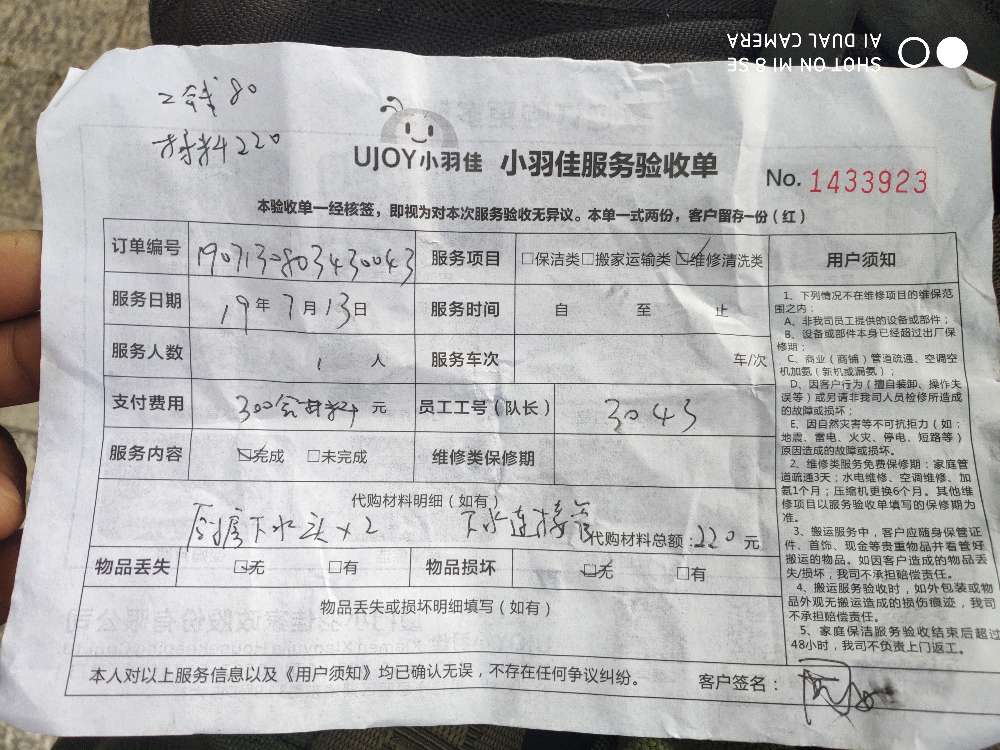 SHOT ON MI 8 SE
AI DUAL CAMERA
工钱80
材料220
UJOY小羽佳 小羽佳服务验收单
No. 1433923
本验收单一经核签，即视为对本次服务验收无异议。本单一式两份，客户留存一份（红）
订单编号 1907130803430043 服务项目 □保洁类□搬家运输类☑维修清洗类
服务日期 19年7月13日 服务时间 自 至 止
服务人数 1人 服务车次 车/次
支付费用 300含材料元 员工工号（队长） 3043
服务内容 ☑完成 □未完成 维修类保修期
代购材料明细（如有）
厨房下水头×2 下水连接管
代购材料总额：220元
物品丢失 ☑无 □有 物品损坏 ☑无 □有
物品丢失或损坏明细填写（如有）
本人对以上服务信息以及《用户须知》均已确认无误，不存在任何争议纠纷。 客户签名：
用户须知
1、下列情况不在维修项目的维保范
围之内：
A、非我司员工提供的设备或部件；
B、设备或部件本身已经超过出厂保
修期；
C、商业（商铺）管道疏通、空调空
机加氨（新机或漏氨）；
D、因客户行为（擅自装卸、操作失
误等）或另请非我司人员检修所造成
的故障或损坏；
E、因自然灾害等不可抗拒力（如：
地震、雷电、火灾、停电、短路等）
原因造成的故障或损坏。
2、维修类服务免费保修期：家庭管
道疏通3天；水电维修、空调维修、加
氨1个月；压缩机更换6个月。其他维
修项目以服务验收单填写的保修期为
准。
3、搬运服务中，客户应随身保管证
件、首饰、现金等贵重物品并看管好
搬运的物品。如因客户造成的物品丢
失/损坏，我司不承担赔偿责任。
4、搬运服务验收时，如外包装或物
品外观无搬运造成的损伤痕迹，我司
不承担赔偿责任。
5、家庭保洁服务验收结束后超过
48小时，我司不负责上门返工。